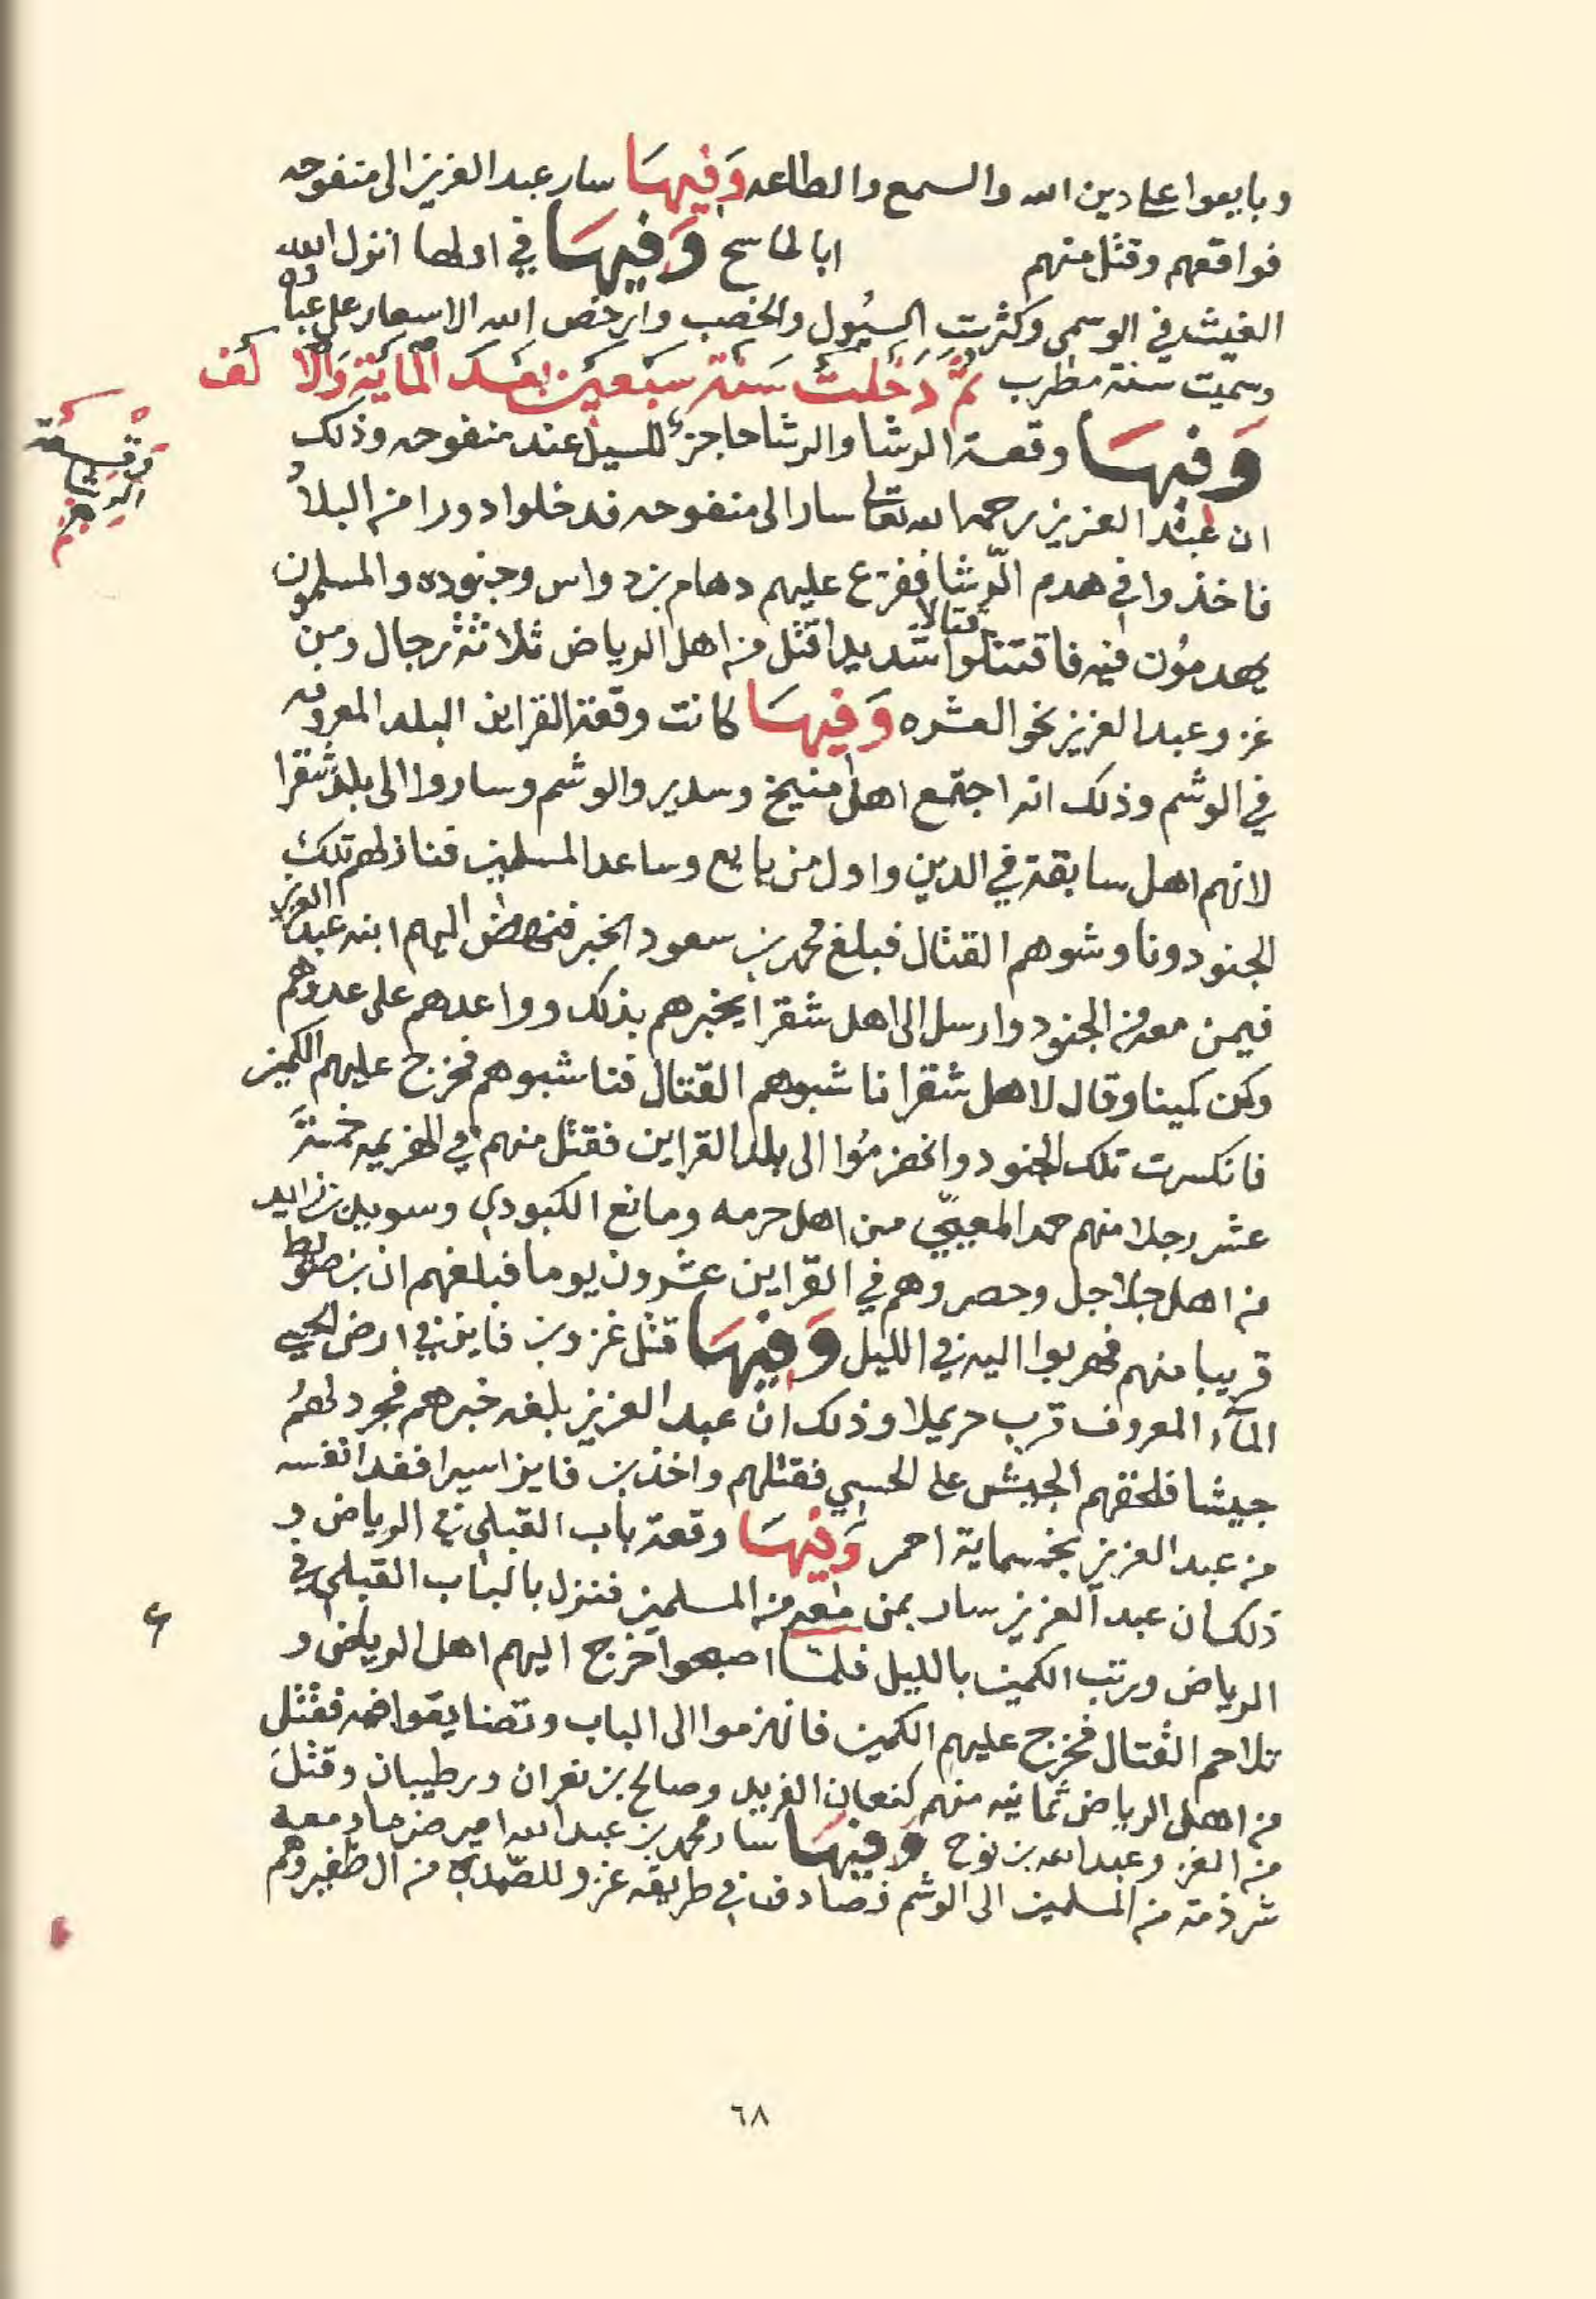 وبايعوا على دين الله والسمع والطاعه وَفيهَا سار عبد العزيز الى منفوحه
فواقعهم وقتل منهم ابا لخا سح وَفيهَا في اولها انزل الله
الغيث في الوسمي وكثرت السيُول والخصب وارخص الله الاسعار على عباده
وسميت سنة مطرب ثمَّ دَخَلت سَنة سَبعين بعد المايَة وَالالف
وَفيهَا وقعة الرشا والرشا حاجز للسيل عند منفوحه وذلك
وقعة الرشا
ان عبد العزيز رحمه الله تعالى سار الى منفوحه فدخلوا دورا من البلد
فاخذوا في هدم الرّشا ففزع عليهم دهام بن دواس وجنوده والمسلمون
يهدمُون فيه فاقتتلوا قتالا شديدا قتل من اهل الرياض ثلاثة رجال ومن
غزو عبد العزيز نحو العشره وَفيهَا كانت وقعة القراين البلد المعروفه
في الوشم وذلك انه اجتمع اهل منيخ وسدير والوشم وساروا الى بلد شقرا
لانهم اهل سابقة في الدين واول من بايع وساعد المسلمين فنازلهم تلك
الجنود وناوشوهم القتال فبلغ محمد بن سعود الخبر فنهض اليهم ابنه عبد العزيز
فيمن معه من الجنود وارسل الى اهل شقرا يخبرهم بذلك وواعدهم على عدوهم
وكمن كمينا وقال لاهل شقرا ناشبوهم القتال فناشبوهم فخرج عليهم الكمين
فانكسرت تلك الجنود وانهزمُوا الى بلد القراين فقتل منهم في الهزيمه خمسة
عشر رجلا منهم حمد المعيبّي من اهل حرمه ومانع الكبودي وسويد بن زايد
من اهل جلاجل وحصروهم في القراين عشرون يوما فبلغهم ان بن صويط
قريبا منهم فهربوا اليه في الليل وَفيهَا قتل غزو بن فايز في ارض الحيسي
المآء المعروف قرب حريملا وذلك ان عبد العزيز بلغه خبرهم فجرد لهم
جيشا فلحقهم الجيش على الحسي فقتلهم واخذ بن فايز اسيرا ففدا نفسه
من عبد العزيز بخمسماية احمر وَفيهَا وقعة باب القبلي في الرياض و
ذلك ان عبد العزيز سار بمن معه من المسلمين فنزل بالباب القبلي في
الرياض ورتب الكمين بالليل فلما اصبحوا خرج اليهم اهل الرياض و
تلاحم القتال فخرج عليهم الكمين فانهزموا الى الباب وتضايقوا فيه فقتل
من اهل الرياض ثمانيه منهم كنعان الفريد وصالح بن نغران ورطيبان وقتل
من الغزو عبد الله بن نوح وَفيهَا سار محمد بن عبد الله امير ضرما ومعه
شرذمة من المسلمين الى الوشم فصادف في طريقه غزو للصّمدة من ال ظفير وهم
٦٨